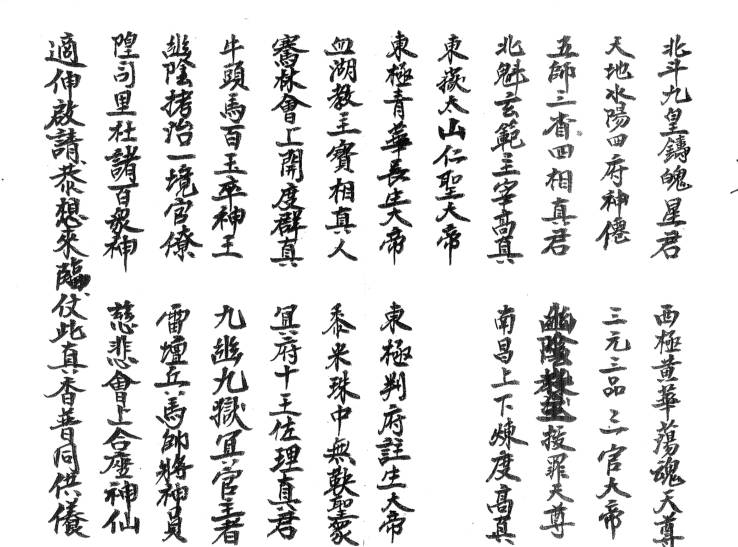 北斗九皇鑄魄星君　西極黃華蕩魂天尊
天地水陽四府神僊　三元三品三官大帝
五師三省四相真君　拔罪天尊
北魁玄範主宰高真　南昌上下煉度高真
東嶽太山仁聖大帝
東極青華長生大帝　東極判府註生大帝
血湖教主寶相真人　黍米珠中無鞅聖衆
寒林會上開度群真　冥府十王佐理真君
牛頭馬百王卒神王　九幽九獄冥官主者
幽陰拷治一境官僚　雷壇兵馬帥將神員
隍司里社諸百衆神　慈悲會上合座神仙
適伸啟請恭想來臨仗此真香普同供養